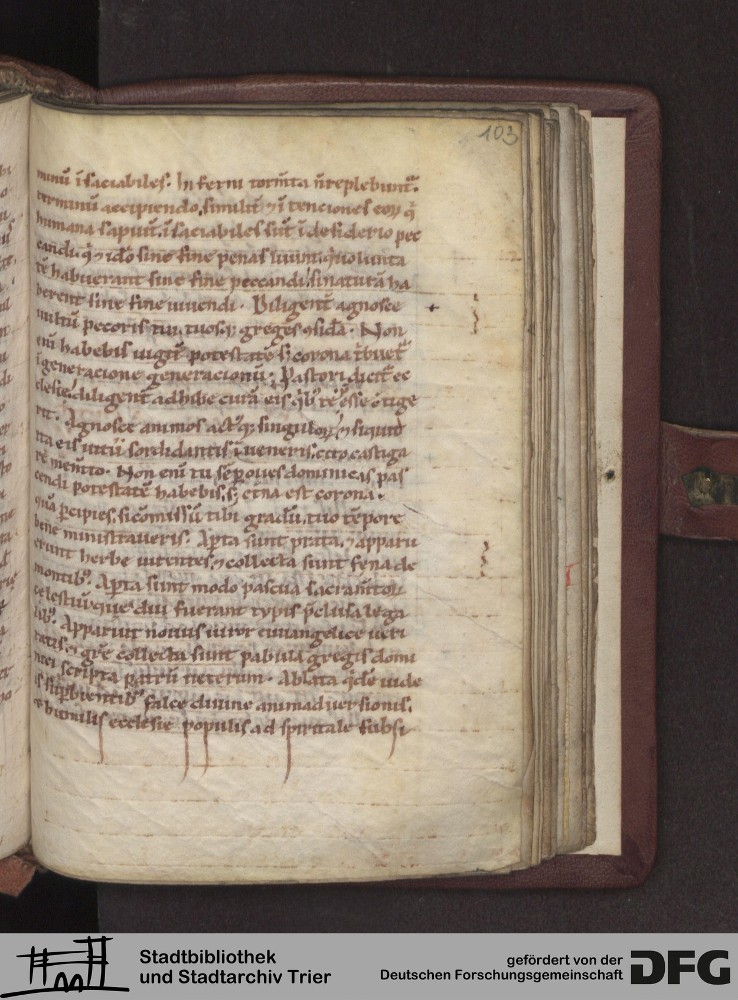 103
minū īsaciabiles. Inferni torm̄ta n̄replebunt̄.
terminū accipiendo, similit̄ ⁊ ī tenciones eoꝝ q̄
humana sapiūt, īsaciabiles sūt ī desiderio pec
candi, q̄ ideo sine fine penas luunt, volunta
tē habuerant sine fine peccandi, si naturā ha
berent sine fine uiuendi. Diligent̄ agnosce
uultū pecoris tui, tuosq; greges ⁊sidā. Non
enī habebis iugit̄ potestatē, s; corona t̄buet̄
ī generacione generacionū. Pastori dicit̄ ec
clesie, diligent̄ adhibe curā eis, qͥbꝰ te esse cōtige
rit. Agnosce animos actꝰq; singuloꝝ, ⁊ siquid
ī eis uicii sordidantis īueneris, cito castiga
re mem̄to. Non enī tu sēp oues dominicas pas
cendi potestatē habebis, s; et̄na est corona,
quā p̄cipies, si cōmissū tibi gradū, tuo tēpore
bene ministraueris. Ap̄ta sunt prata, ⁊ apparu
erunt herbe uirentes, ⁊ collecta sunt fena de
montibꝰ. Ap̄ta sunt modo pascua sacram̄toꝝ
celestiū, que diu fuerant typis p̄clusa lega
libꝰ. Apparuit nouus uiror euuangelice ueri
tatis, 
collecta sunt pabula gregis domi
nici scripta patrū ueterum. Ablata qͥde uide
is suꝑbientibꝰ falce diuine animaduersionis,
humilis ecclesie populis ad spiritale subsi
Stadtbibliothek
und Stadtarchiv Trier
gefördert von der
Deutschen Forschungsgemeinschaft
DFG